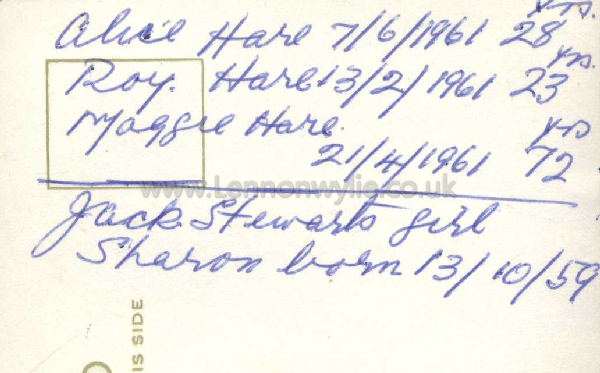 yrs.
Alice Hare 7/6/1961 28
yrs.
Roy. Hare 13/2/1961 23
Maggie Hare. yrs
21/4/1961 72
www.Lennonwylie.co.uk
Jack Stewarts girl
Sharon born 13/10/59
IS SIDE